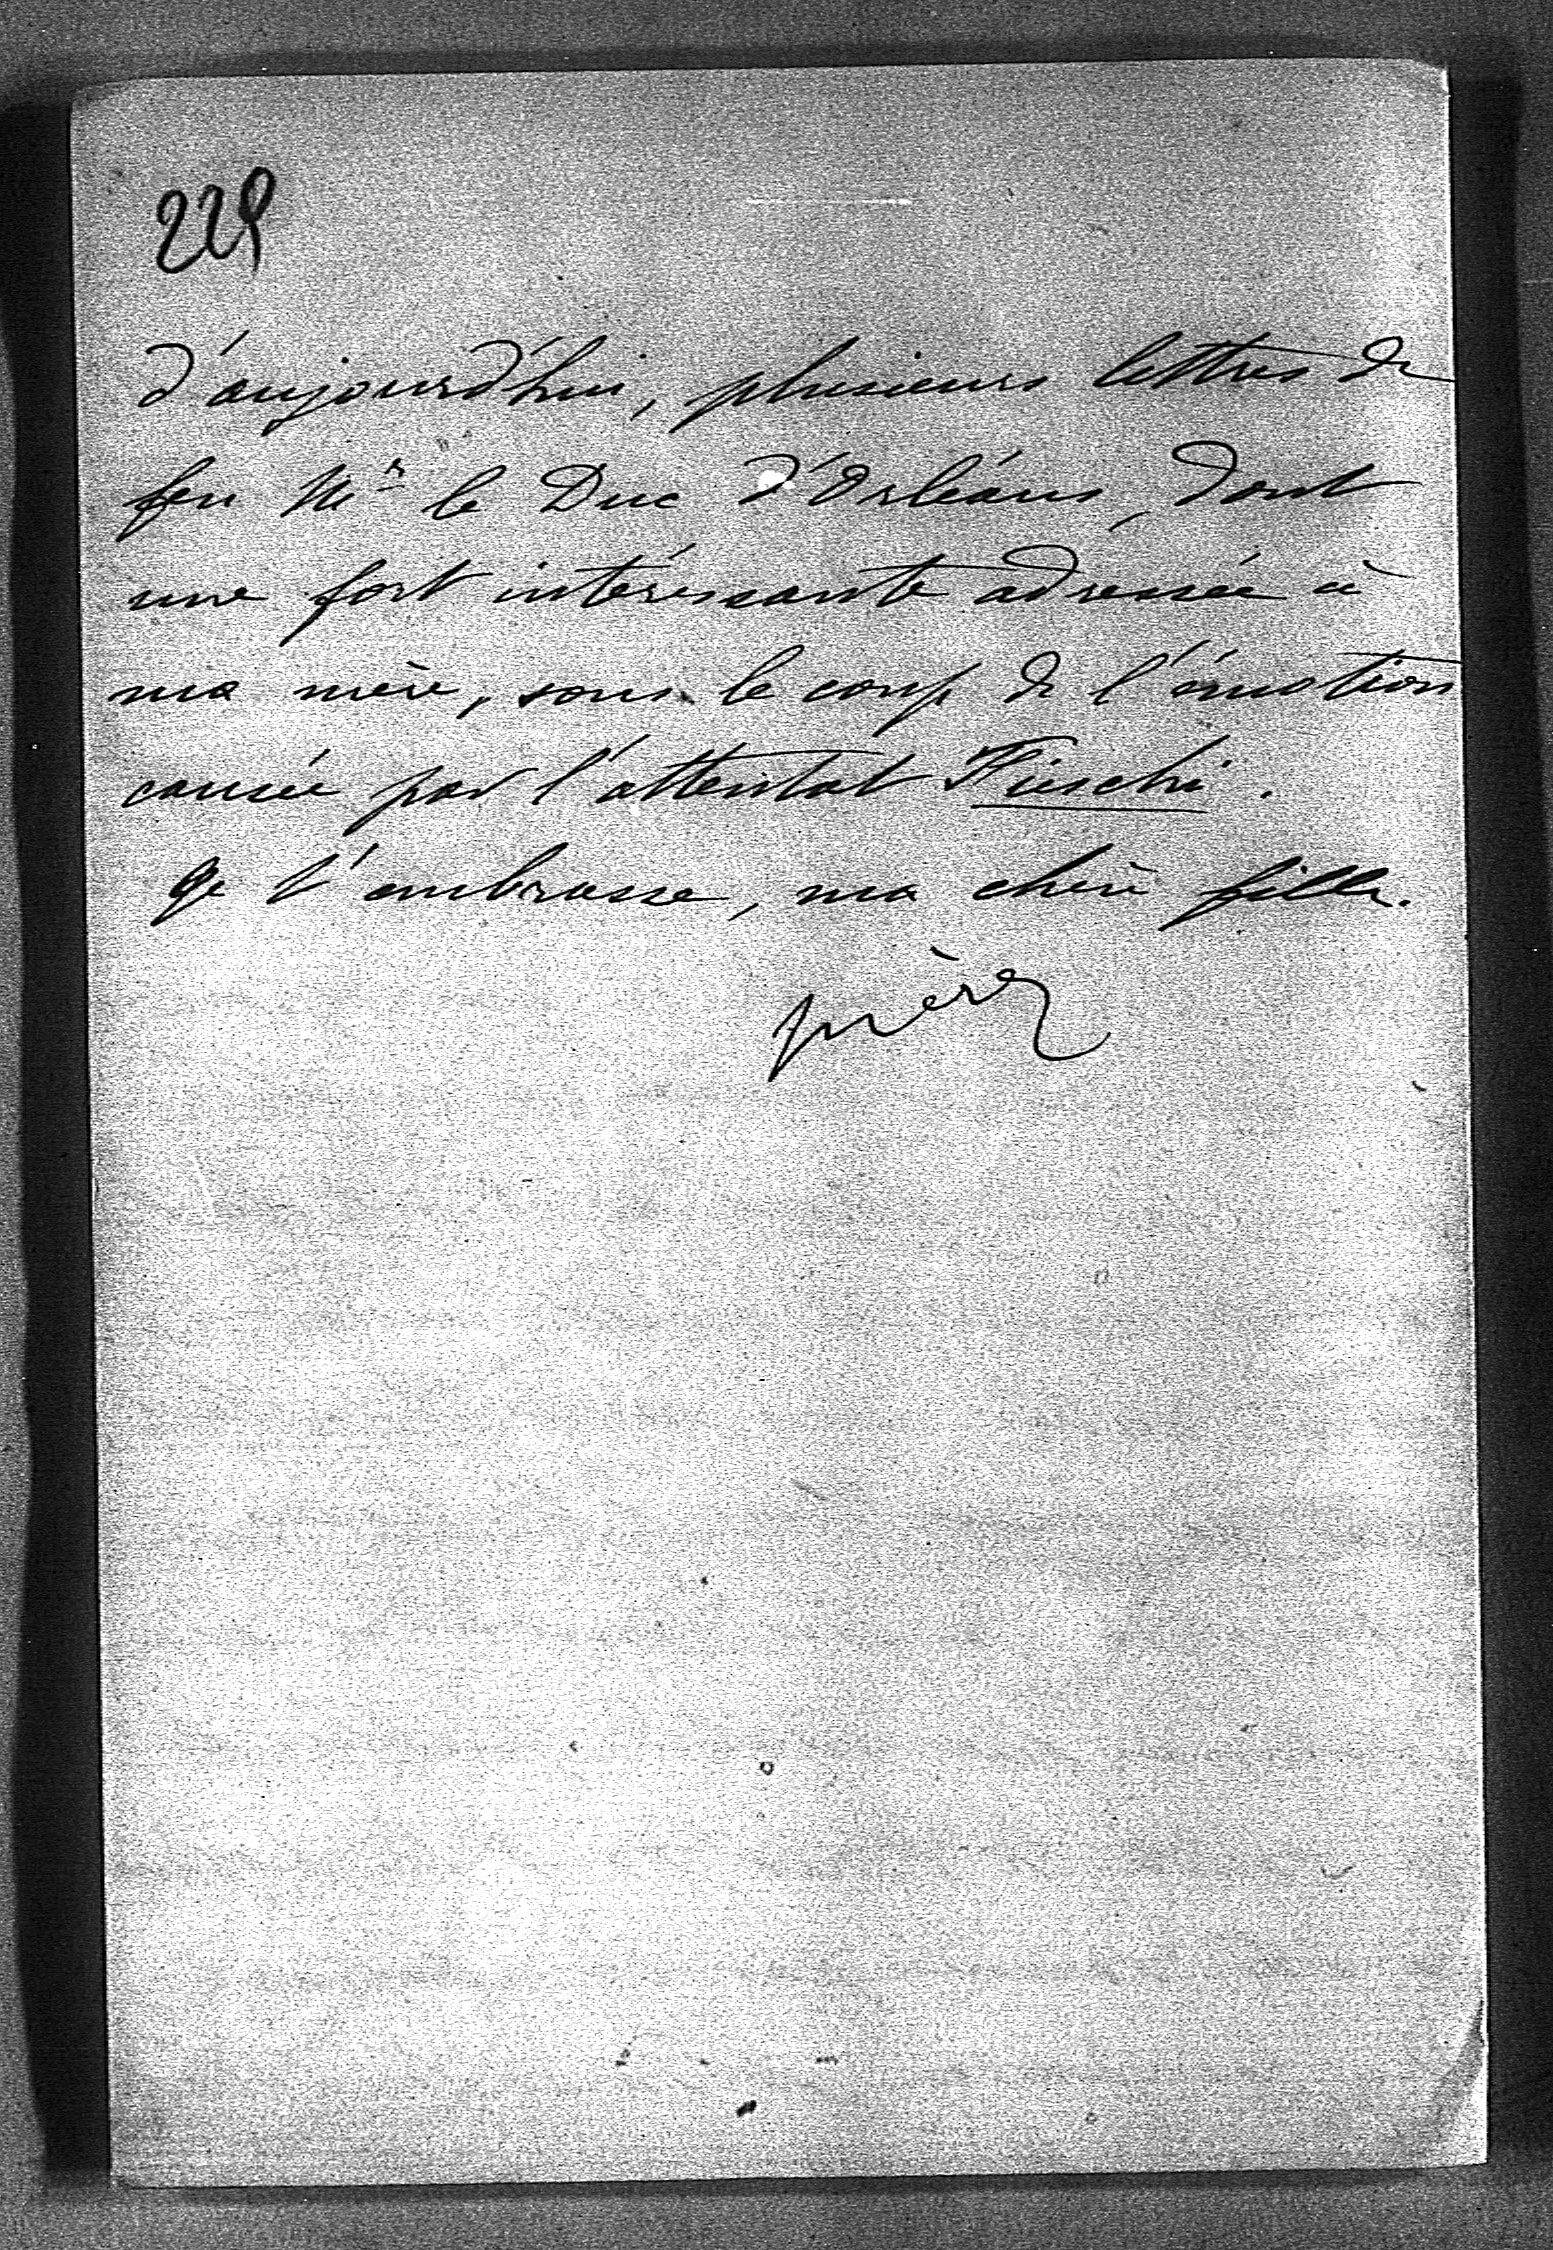 229
d'aujourd'hui, plusieurs lettres de
feu Mr le Duc d'Orléans, dont
une fort intéressante adressée à
ma mère, sous le coup de l'émotion
causée par l'attentat Fieschi.
Je t'embrasse, ma chère fille.
père